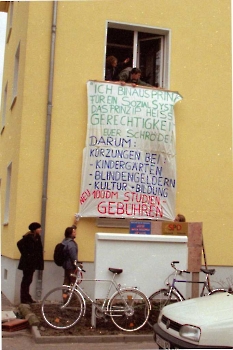 ICH BIN AUS PRINZIP
FÜR EIN SOZIALSYST
DAS PRINZIP HEISST
GERECHTIGKEIT
EUER SCHRÖDER
DARUM:
KÜRZUNGEN BEI:
- KINDERGÄRTEN
- BLINDENGELDERN
- KULTUR - BILDUNG
NEU 100DM STUDIEN-
GEBÜHREN
SPD